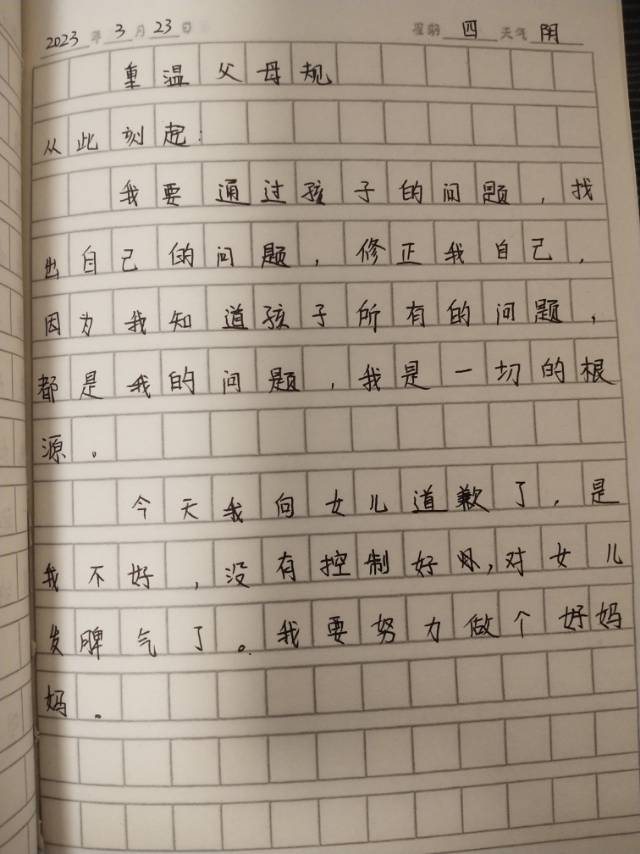 2023年3月23日 星期四 天气阴
重温父母规
从此刻起：
我要通过孩子的问题，找
出自己的问题，修正我自己，
因为我知道孩子所有的问题，
都是我的问题，我是一切的根
源。
今天我向女儿道歉了，是
我不好，没有控制好，对女儿
发脾气了。我要努力做个好妈
妈。